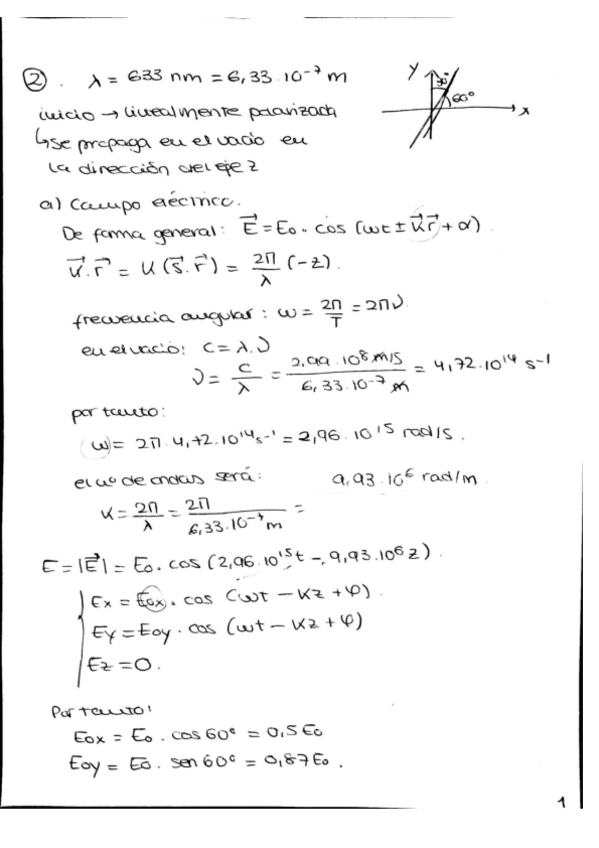 ② . λ = 633 nm = 6,33·10⁻⁷ m
Y 30° 60° x
inicio → linealmente polarizada
↳ se propaga en el vacío en
la dirección del eje z
a) Campo eléctrico.
De forma general: E⃗ = Eo · cos (ωt ± k⃗r⃗ + α)
k⃗·r⃗ = k (s⃗·r⃗) = 2π/λ (-z).
frecuencia angular: ω = 2π/T = 2πν
en el vacío: c = λ·ν
ν = c/λ = 2,99·10⁸ m/s / 6,33·10⁻⁷ m = 4,72·10¹⁴ s⁻¹
por tanto:
ω = 2π · 4,72·10¹⁴s⁻¹ = 2,96·10¹⁵ rad/s.
el nº de ondas será: 9,93·10⁶ rad/m
k = 2π/λ = 2π / 6,33·10⁻⁷ m =
E = |E⃗| = Eo · cos (2,96·10¹⁵t - 9,93·10⁶ z).
Ex = Eox · cos (ωt - kz + φ)
Ey = Eoy · cos (ωt - kz + φ)
Ez = 0.
Por tanto:
Eox = Eo · cos 60° = 0,5 Eo
Eoy = Eo · sen 60° = 0,87 Eo.
1